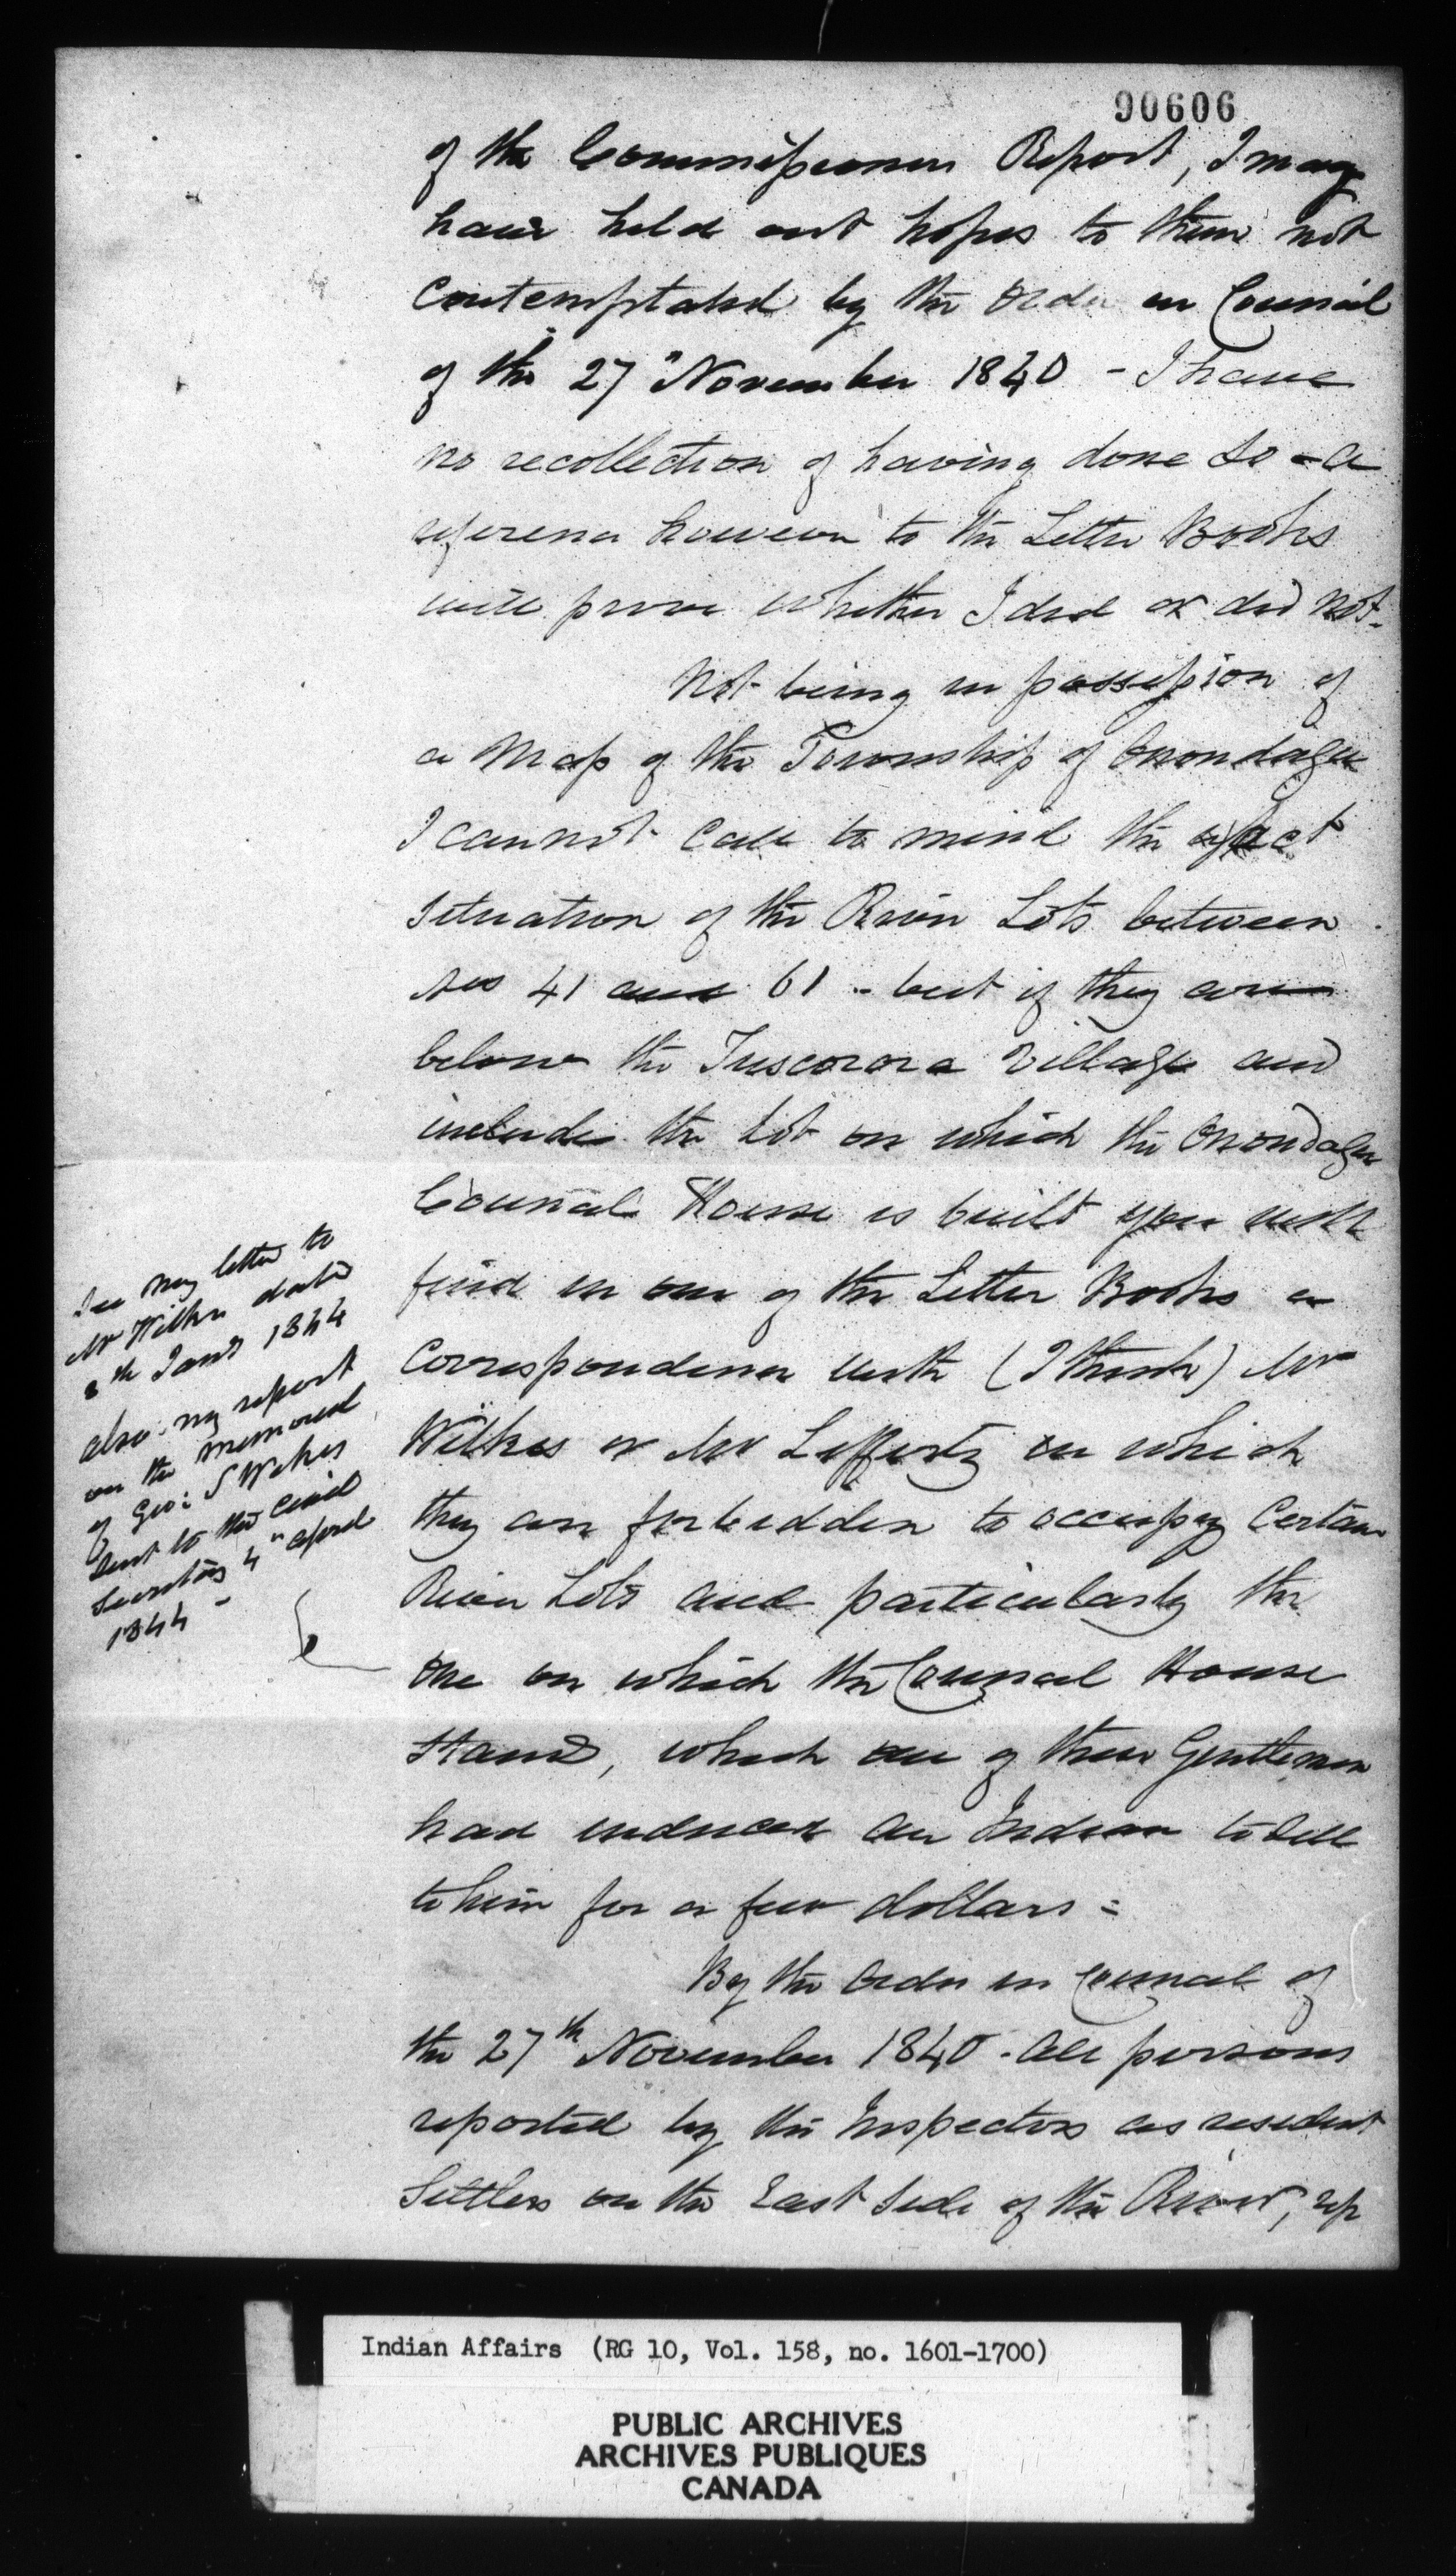 90606
of the Commissioners Report, I may
have held out hopes to them not
contemplated by the Order in Council
of the 27" November 1840 - I have
no recollection of having done so - a
reference however to the Letter Books
will prove whether I did or did not.
Not being in possession of
a Map of the Township of Onondaga
I cannot call to mind the exact
situation of the River Lots between
Nos 41 and 61 - but if they are
below the Tuscorora Village and
include the Lot on which the Onondaga
Council House is built you will
find in one of the Letter Books a
Correspondence with (I think) Mr
Wilkes or Mr Lefferty in which
they are forbidden to occupy Certain
River Lots and particularly the
One on which the Council House
Stands, which one of these Gentlemen
had induced an Indian to sell
to him for a few dollars =
By the Order in Council of
the 27th November 1840 - all persons
reported by the Inspectors as resident
Settlers on the East side of the River, up
See my letter to
Mr Wilkes dated
8th Jany 1844
also my report
on the memorial
of Geo: S Wilkes
sent to the Civil
Secretary 4" April
1844 -
Indian Affairs (RG 10, Vol. 158, no. 1601-1700)
PUBLIC ARCHIVES
ARCHIVES PUBLIQUES
CANADA